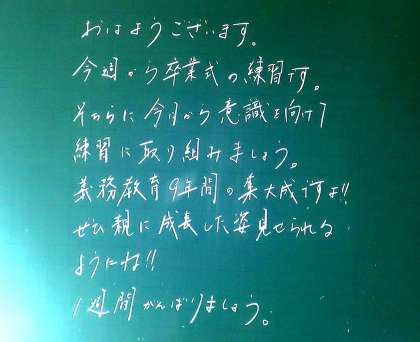 おはようございます。
今週から卒業式の練習です。
そちらに今日から意識を向けて
練習に取り組みましょう。
義務教育9年間の集大成ですよ!!
ぜひ親に成長した姿見せられる
ようにね!!
1週間がんばりましょう。